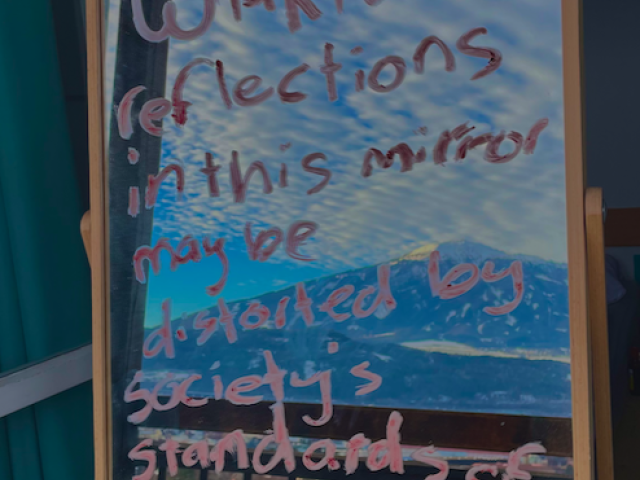 reflections
in this mirror
may be
distorted by
society's
standards of